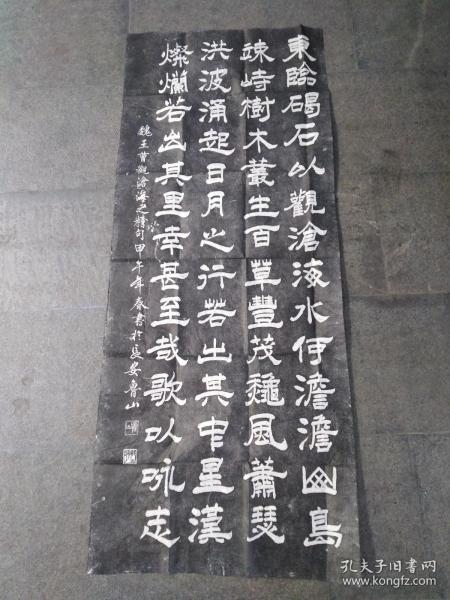 東臨碣石以觀滄海水何澹澹山島
竦峙樹木叢生百草豐茂龝風蕭瑟
洪波涌起日月之行若出其中星漢
燦爛若出其里幸甚至哉歌以咏志
魏王曹觀滄海之精句甲午年春書於長安魯山
孔夫子旧书网
www.kongfz.com